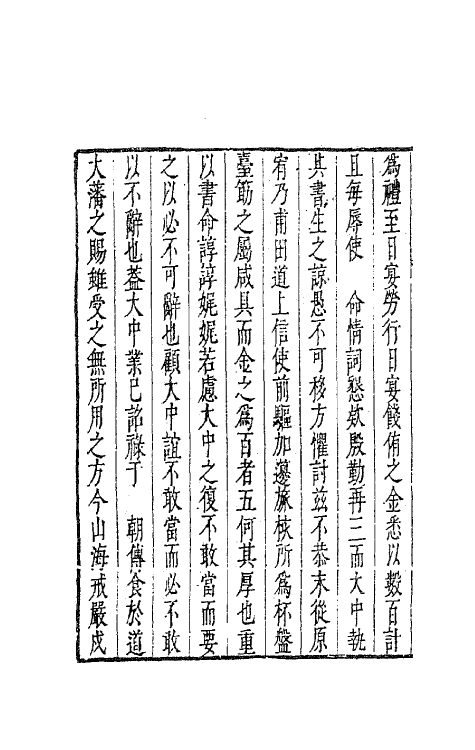 為禮至日宴勞行日宴餞侑之金悉以數百計
且每辱使　命情詞懇欵殷勤再三而大中執
其書生之諒愚不可移方懼討茲不恭末從原
宥乃甫田道上信使前驅加籩旅核所為杯盤
臺筯之屬咸具而金之為百者五何其厚也重
以書命諄諄娓娓若慮大中之復不敢當而要
之以必不可辭也顧大中誼不敢當而必不敢
以不辭也葢大中業已詺祿于　朝傳食於道
大藩之賜雖受之無所用之方今山海戒嚴戍